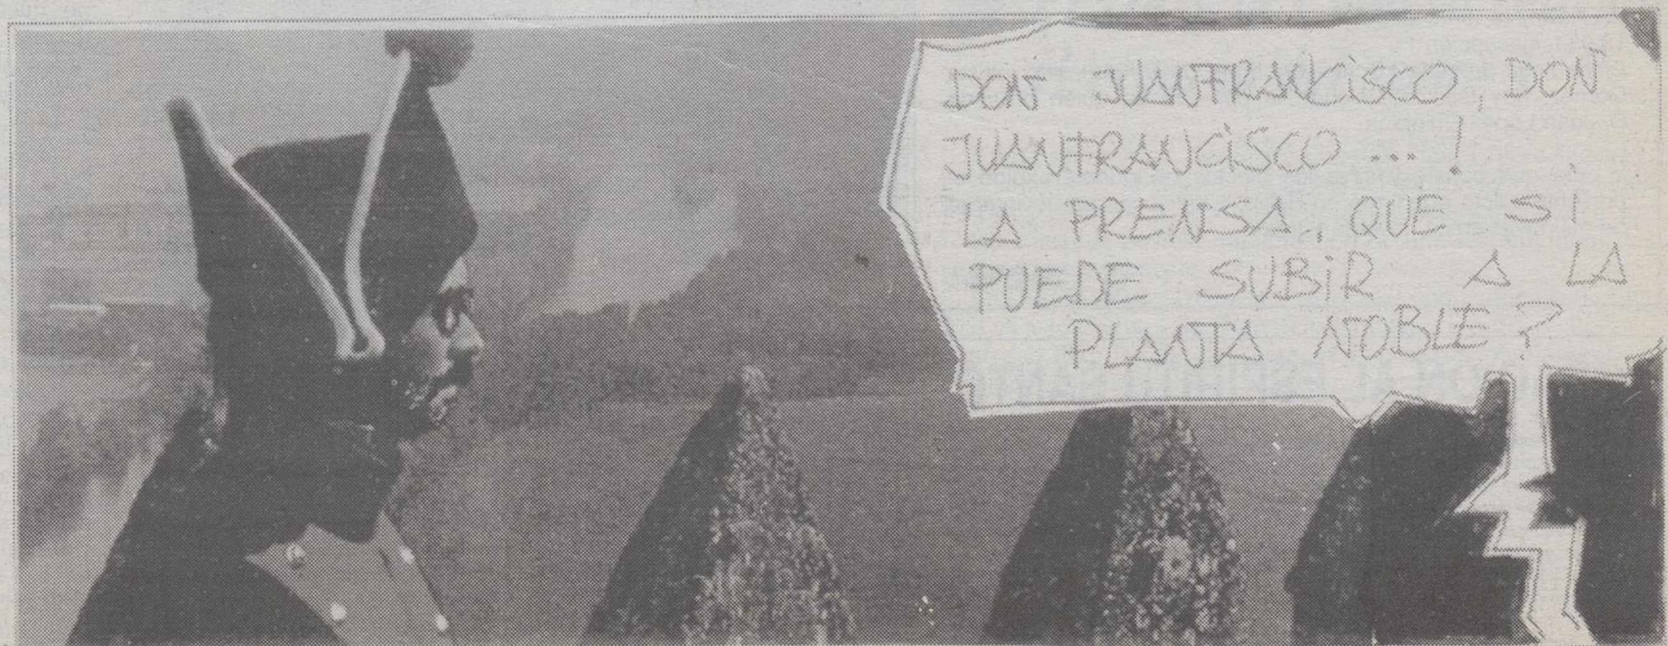 DON JUANFRANCISCO, DON
JUANFRANCISCO ... !
LA PRENSA, QUE SI
PUEDE SUBIR A LA
PLANTA NOBLE?